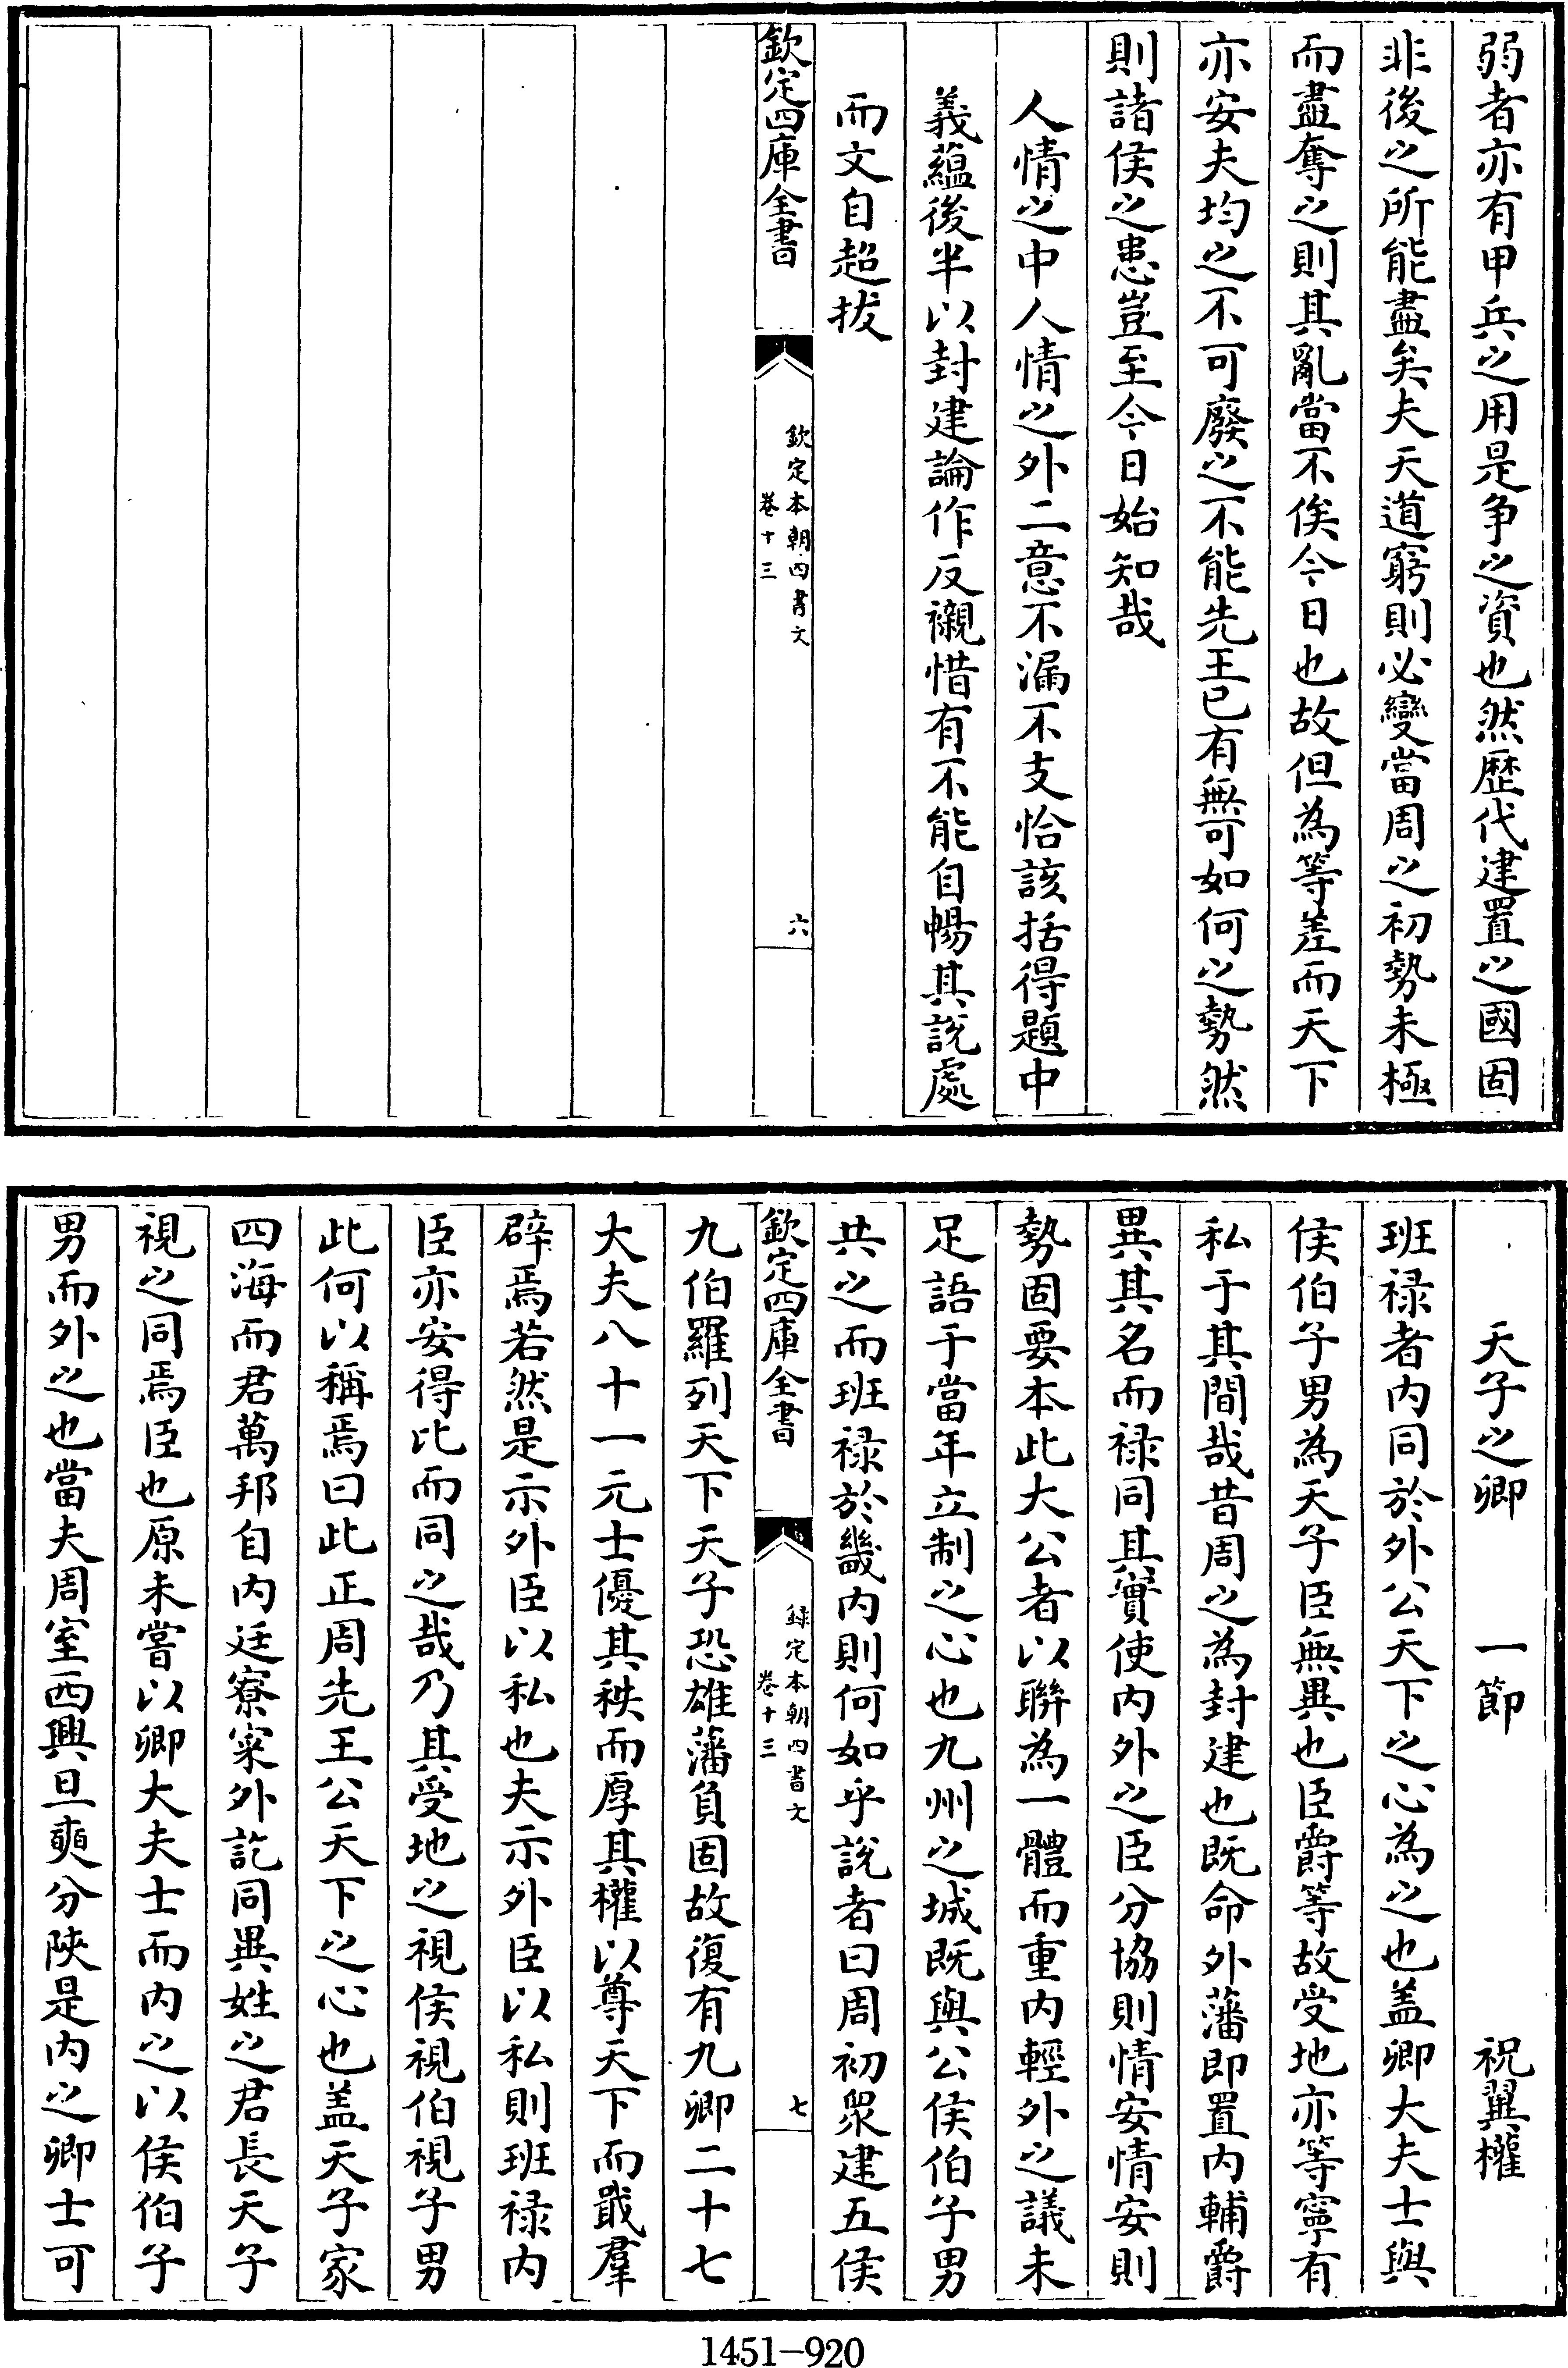 弱者亦有甲兵之用是爭之資也然歴代建置之國固
非後之所能盡矣夫天道窮則必變當周之初勢未極
而盡奪之則其亂當不俟今日也故但為等差而天下
亦安夫均之不可廢之不能先王已有無可如何之勢然
則諸侯之患豈至今日始知哉
人情之中人情之外二意不漏不支恰該括得題中
義蘊後半以封建論作反襯惜有不能自暢其說處
而文自超拔
欽定四庫全書
欽定本朝四書文
卷十三
六
天子之卿 一節 祝翼權
班祿者内同於外公天下之心為之也盖卿大夫士與
侯伯子男為天子臣無異也臣爵等故受地亦等寧有
私于其間哉昔周之為封建也既命外藩即置内輔爵
異其名而祿同其實使内外之臣分協則情安情安則
勢固要本此大公者以聨為一體而重内輕外之議未
足語于當年立制之心也九州之城既與公侯伯子男
共之而班祿於畿内則何如乎說者曰周初衆建五侯
欽定四庫全書
録定本朝四書文
卷十三
七
九伯羅列天下天子恐雄藩負固故復有九卿二十七
大夫八十一元士優其秩而厚其權以尊天下而戢羣
辟焉若然是示外臣以私也夫示外臣以私則班祿内
臣亦安得比而同之哉乃其受地之視侯視伯視子男
此何以稱焉曰此正周先王公天下之心也盖天子家
四海而君萬邦自内廷寮寀外訖同異姓之君長天子
視之同焉臣也原未嘗以卿大夫士而内之以侯伯子
男而外之也當夫周室西興旦奭分陜是内之卿士可
1451-920